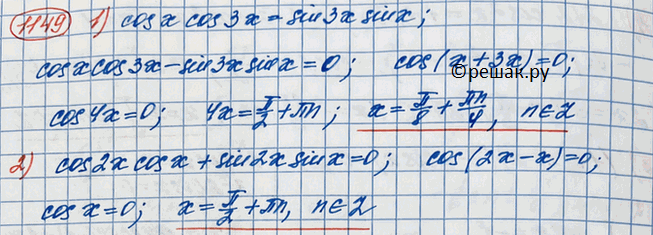 1149 1) cos x cos 3x = sin 3x sin x;
cos x cos 3x - sin 3x sin x = 0; cos(x + 3x) = 0;
©решак.ру
cos 4x = 0; 4x = π/2 + πn; x = π/8 + πn/4, n ∈ Z
2) cos 2x cos x + sin 2x sin x = 0; cos(2x - x) = 0;
cos x = 0; x = π/2 + πn, n ∈ Z